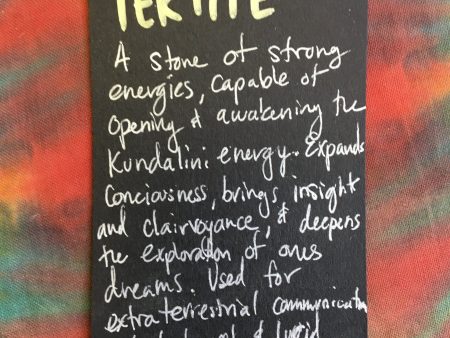 TEKTITE
A stone of strong
energies, Capable of
Opening & awakening the
Kundalini energy. Expands
Conciousness, brings insight
and clairvoyance, & deepens
the exploration of ones
dreams. Used for
extraterrestrial communication
& lucid